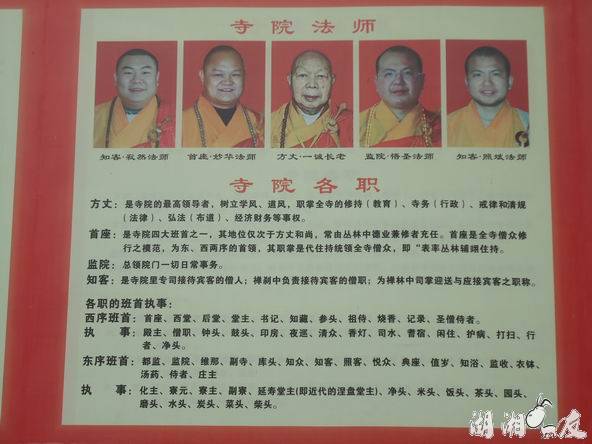 寺院法师
知客·寂然法师
首座·妙华法师
方丈·一诚长老
监院·悟圣法师
知客·照斌法师
寺院各职
方丈：是寺院的最高领导者，树立学风、道风，职掌全寺的修持（教育）、寺务（行政）、戒律和清规
（法律）、弘法（布道）、经济财务等事权。
首座：是寺院四大班首之一，其地位仅次于方丈和尚，常由丛林中德业兼修者充任。首座是全寺僧众修
行之模范，为东、西两序的首领，其职掌是代住持统领全寺僧众，即“表率丛林辅翊住持。
监院：总领院门一切日常事务。
知客：是寺院里专司接待宾客的僧人；禅刹中负责接待宾客的僧职；为禅林中司掌迎送与应接宾客之职称。
各职的班首执事：
西序班首：首座、西堂、后堂、堂主、书记、知藏、参头、祖侍、烧香、记录、圣僧侍者。
执事：殿主、僧职、钟头、鼓头、印房、夜巡、清众、香灯、司水、耆宿、闲住、护病、打扫、行
者、净头。
东序班首：都监、监院、维那、副寺、库头、知众、知客、照客、悦众、典座、值岁、知浴、监收、衣钵、
汤药、侍者、庄主
执事：化主、寮元、寮主、副寮、延寿堂主(即近代的涅盘堂主)、净头、米头、饭头、茶头、园头、
磨头、水头、炭头、菜头、柴头。
湖湘
友